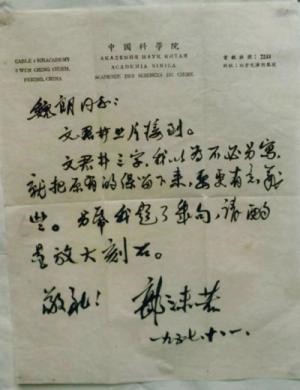 中國科學院
CABLE: SINACADEMY
3 WEN CHING CHIEH,
PEKING, CHINA
АКАДЕМИЯ НАУК КИТАЯ
ACADEMIA SINICA
ACADEMIE DES SCIENCES DU CHINE
電報掛號:
魏朗同志:
文君井照片接到。
文君井三字,我以为不必另写,
就把原有的保留下来,要更有意义
些。另希我题了几句,请酌
量放大刻石。
敬礼!
郭沫若
一九五七、十、一、